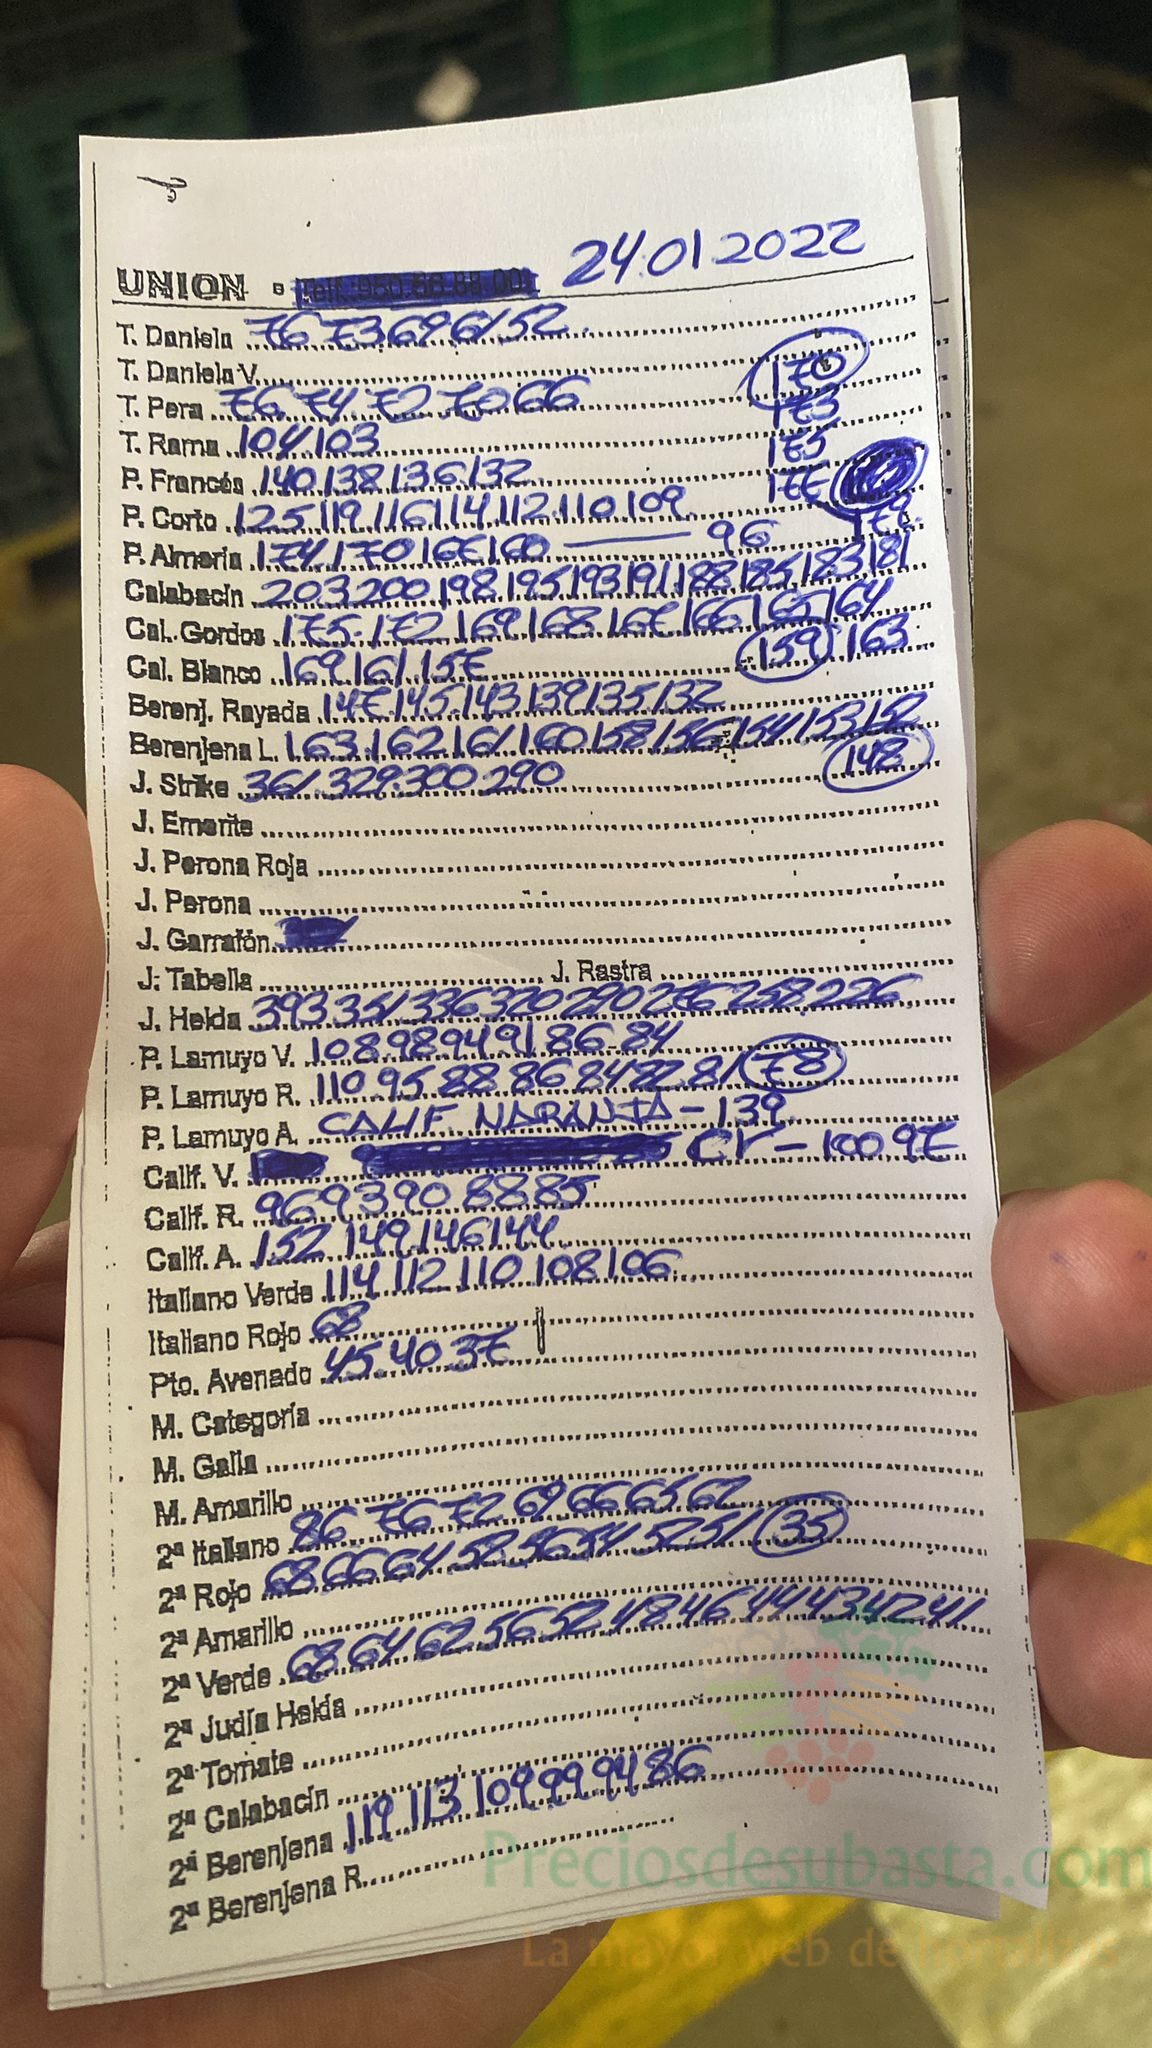 24.01 2022
UNION - Telf.: 950.
T. Daniela 76 73 69 61 52
T. Daniela V. 170
T. Pera 76 74 72 70 66 173
T. Rama 104 103 175
P. Francés 140 138 136 132 177
P. Corto 125 119 116 114 112 110 109 179
P. Almería 174 170 167 160 — 96
Calabacín 203 200 198 195 193 191 188 185 183 181
Cal. Gordos 175 172 169 168 167 166 165 164
Cal. Blanco 169 161 157 159 163
Berenj. Rayada 147 145 143 139 135 132
Berenjena L. 163 162 161 160 158 156 154 153 152
J. Strike 361 329 300 290 148
J. Emerite
J. Perona Roja
J. Perona
J. Garrafón
J. Tabella J. Rastra
J. Helda 393 351 336 320 290 276 258 226
P. Lamuyo V. 108 98 94 91 86 84
P. Lamuyo R. 110 95 88 86 84 82 81 78
P. Lamuyo A. CALIF. NARANJA - 139
Calif. V. CV - 100 97
Calif. R. 96 93 90 88 85
Calif. A. 152 149 146 144
Italiano Verde 114 112 110 108 106
Italiano Rojo 68
Pto. Avenado 45 40 37
M. Categoría
M. Galia
M. Amarillo
2ª Italiano 86 76 72 69 66 65 62
2ª Rojo 68 66 64 58 56 54 52 51 35
2ª Amarillo
2ª Verde 68 64 62 56 52 48 46 44 43 42 41
2ª Judía Helda
2ª Tomate
2ª Calabacín
2ª Berenjena 119 113 109 99 94 86
2ª Berenjena R.
Preciosdesubasta.com
La mayor web de hortalizas